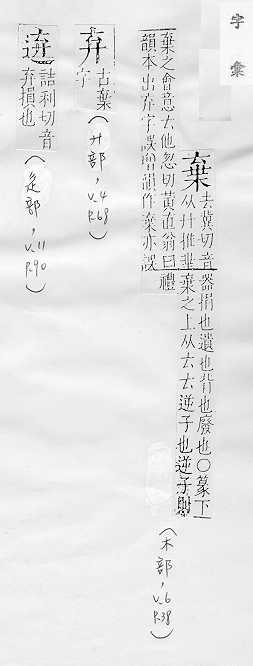 字彙
棄
去冀切音器捐也遺也背也廢也○篆下
从廾推𠦒棄之上从𠫓𠫓逆子也逆子則
棄之會意𠫓他忽切黃直翁曰禮
韻本出弃字誤增韻作棄亦誤
(木部,v.6 P.38)
弃
古棄
字
(廾部,v.4 P.68)
詰利切音
弃損也
(辵部,v.11 P.90)